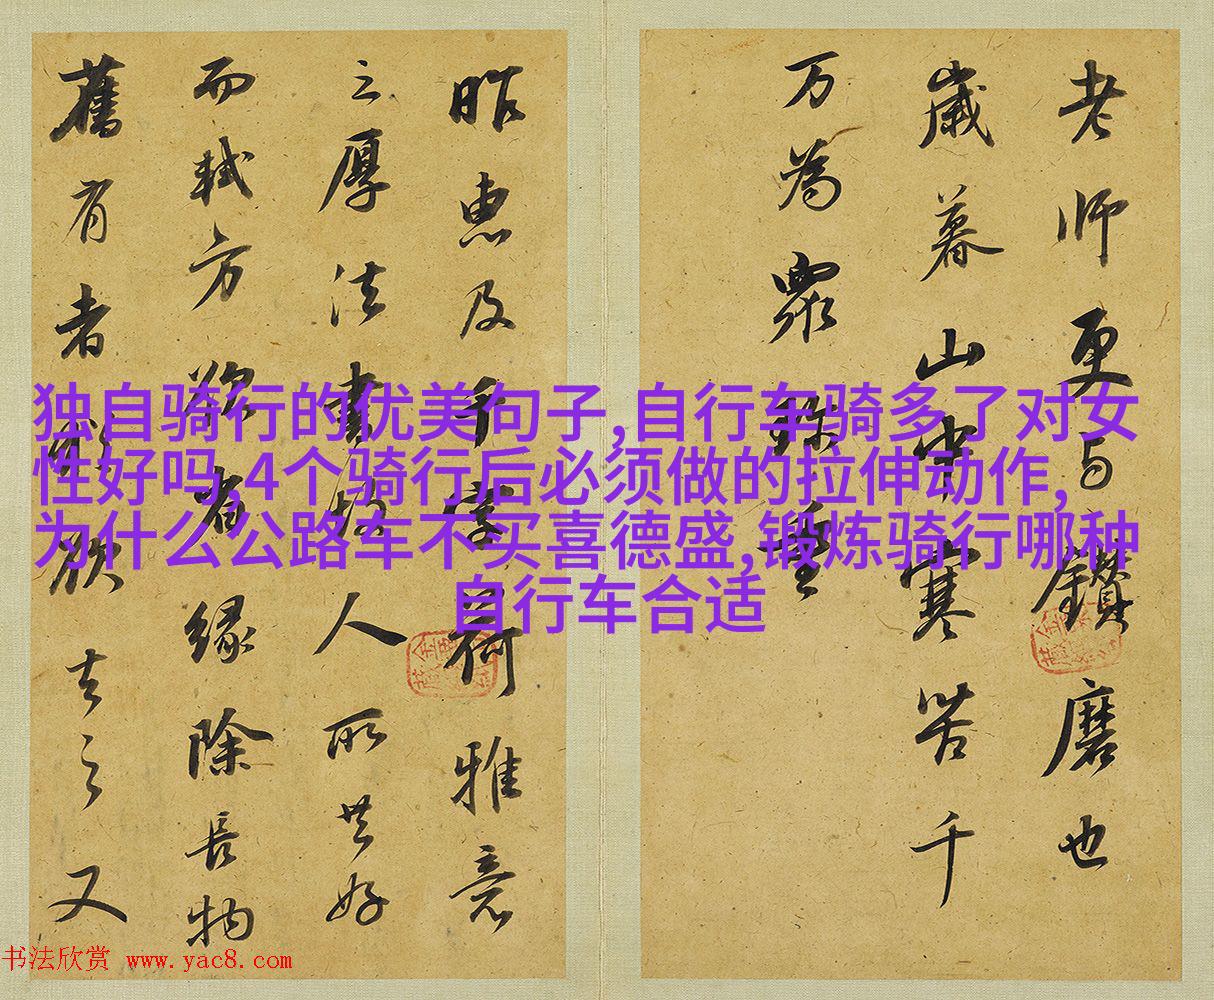 老师更与鑽磨也
歲暮山中寒苦千
万為眾珎重
昨惠及千字荷雅意
之厚法書故人所共好
而軾方欲省緣除長物
舊有者猶欲去之又
独自骑行的优美句子,自行车骑多了对女
性好吗,4个骑行后必须做的拉伸动作,
为什么公路车不买喜德盛,锻炼骑行哪种
自行车合适
书法欣赏 www.yac8.com